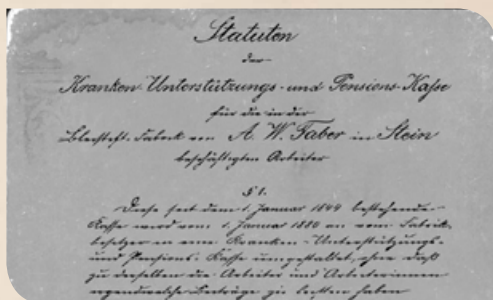 Statuten
der
Kranken-Unterstützungs- und Pensions-Kasse
für die in der
Bleistift-Fabrik von A. W. Faber in Stein
beschäftigten Arbeiter
§ 1.
Diese seit dem 1. Januar 1844 bestehende
Kasse wird vom 1. Januar 1880 an vom Fabrik-
besitzer in eine Kranken-Unterstützungs-
und Pensions-Kasse umgestaltet, ohne daß
zu derselben die Arbeiter und Arbeiterinnen
irgendwelche Beiträge zu leisten haben